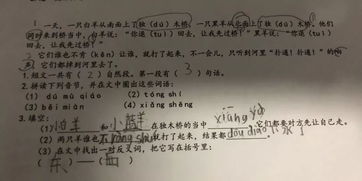 一天，一只白羊从南面上了独（dú）木桥，一只黑羊从北面上了独木桥。他们
同时来到桥当中，白羊说："你退（tuì）回去，让我先过桥！"黑羊说："你退（tuì）
回去，让我先过桥！"
它们谁也不肯（kěn）让谁，就打了起来，不一会儿，只听到河里"扑通！扑通！"的
它们都掉到河里去了。
1. 短文一共有（2）自然段，第一段有（3）句话。
2. 拼读下列音节，并在文中圈出这些词语：
(1) dú mù qiáo (2) tóng shí
(3) běi miàn (4) xiǎng shēng
3. 填空：
(1) 在独木桥的当中 它们都要对方先让自己走。
(2) 两只羊谁也 就打了起来，结果都
(3) 在文中找出一对反义词，把它写在括号里：
（东）——（西）